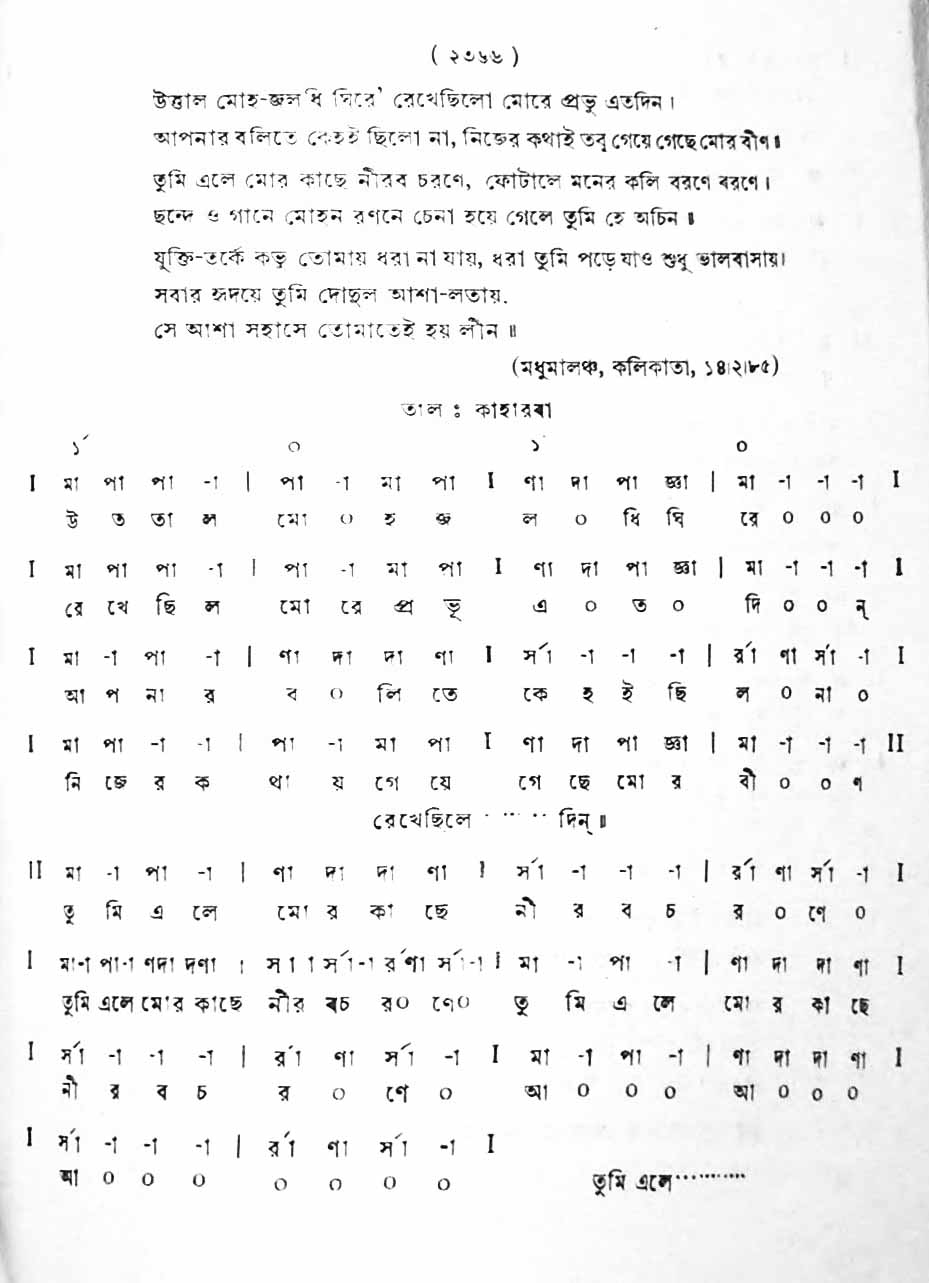 ( ২৩৬৬ )
উত্তাল মোহ-জলধি ঘিরে' রেখেছিলো মোরে প্রভু এতদিন।
আপনার বলিতে কেহই ছিলো না, নিজের কথাই তবু গেয়ে গেছে মোর বীণ॥
তুমি এলে মোর কাছে নীরব চরণে, ফোটালে মনের কলি বরণে বরণে।
ছন্দে ও গানে মোহন রণনে চেনা হয়ে গেলে তুমি হে অচিন॥
যুক্তি-তর্কে কভু তোমায় ধরা না যায়, ধরা তুমি পড়ে যাও শুধু ভালবাসায়।
সবার হৃদয়ে তুমি দোদুল আশা-লতায়.
সে আশা সহাসে তোমাতেই হয় লীন॥
(মধুমালঞ্চ, কলিকাতা, ১৪।২।৮৫)
তাল ঃ কাহারবা
১́ ০ ১ ০
I মা পা পা -া | পা -া মা পা I ণা দা পা জ্ঞা | মা -া -া -া I
উ ত তা ল মো ০ হ জ ল ০ ধি ঘি রে ০ ০ ০
I মা পা পা -া | পা -া মা পা I ণা দা পা জ্ঞা | মা -া -া -া I
রে খে ছি ল মো রে প্র ভূ এ ০ ত ০ দি ০ ০ ন্
I মা -া পা -া | ণা দা দা ণা I র্সা -া -া -া | র্রা ণা র্সা -া I
আ প না র ব ০ লি তে কে হ ই ছি ল ০ না ০
I মা পা -া -া | পা -া মা পা I ণা দা পা জ্ঞা | মা -া -া -া II
নি জে র ক থা য় গে য়ে গে ছে মো র বী ০ ০ ণ
রেখেছিলে ·····দিন্॥
II মা -া পা -া | ণা দা দা ণা I র্সা -া -া -া | র্রা ণা র্সা -া I
তু মি এ লে মো র কা ছে নী র ব চ র ০ ণে ০
I মা-া পা-া ণদা দণা । সা া র্সা-া র্রণা র্সা-া I মা -া পা -া | ণা দা দা ণা I
তুমি এলে মোর কাছে নীর বচ র০ ণে০ তু মি এ লে মো র কা ছে
I র্সা -া -া -া | র্রা ণা র্সা -া I মা -া পা -া | ণা দা দা ণা I
নী র ব চ র ০ ণে ০ আ ০ ০ ০ আ ০ ০ ০
I র্সা -া -া -া | র্রা ণা র্সা -া I
আ ০ ০ ০ ০ ০ ০ ০ তুমি এলে··········